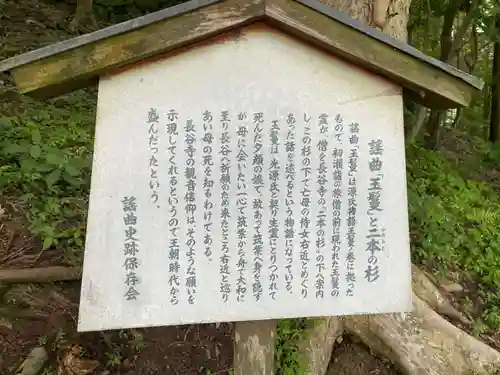 謡曲「玉鬘」と二本の杉
謡曲「玉鬘」は源氏物語玉鬘の巻に拠った
もので、初瀬詣の旅僧の前に現われた玉鬘の
霊が、僧を長谷寺の「二本の杉」の下へ案内
し、この杉の下で亡母の侍女右近とめぐり
あった話を述べるという物語になっている。
玉鬘は、光源氏と契り生霊にとりつかれて
死んだ夕顔の娘で、故あって筑紫へ身を隠す
が母に会いたい一心で筑紫から舟で大和に
至り長谷へ祈願のため来たところ右近と巡り
あい母の死を知るわけである。
長谷寺の観音信仰はそのように霊験を
示現してくれるというので王朝時代から
盛んだったという。
謡曲史跡保存会